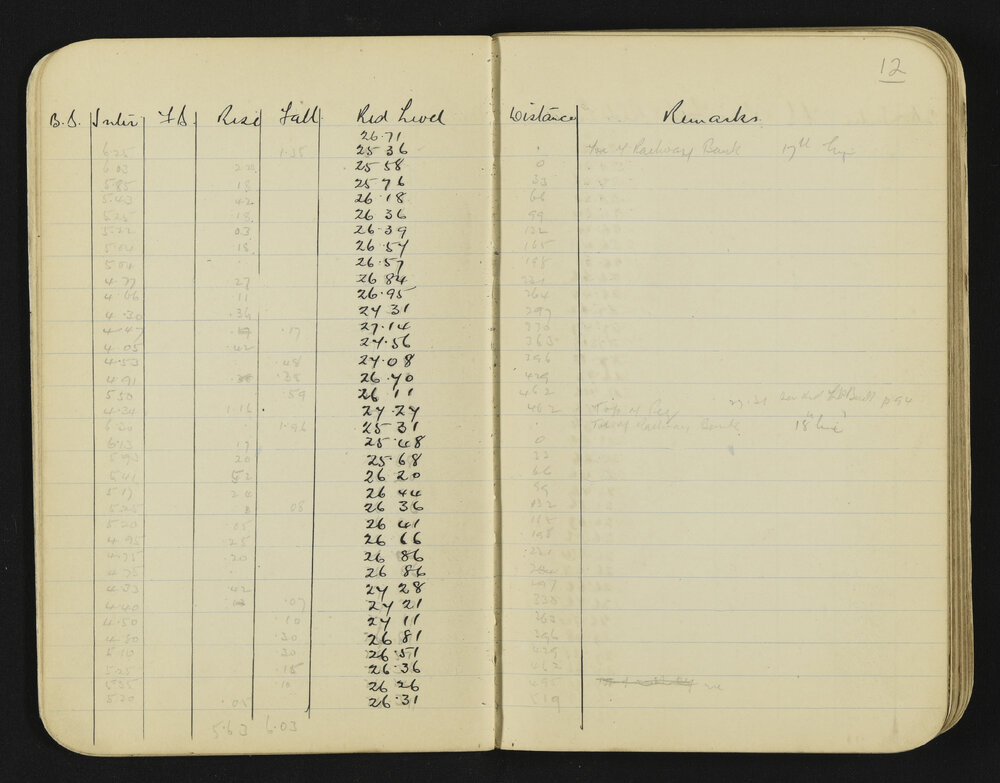 12
B.S. Inter F.S. Rise Fall Red Level Distance Remarks
26.71
6.25 1.35 25 36 Toe of Railway Bank 17th line
6.03 22 25 58 0
5.85 18 25 76 33
5.43 42 26 18 66
5.25 18 26 36 99
5.22 03 26.39 132
5.04 18 26.57 165
5.04 26.57 198
4.77 27 26 84 231
4.66 11 26.95 264
4.30 .36 27 31 297
4.47 .17 27.14 330
4.05 .42 27.56 363
4.53 .48 27.08 396
4.91 .38 26.70 429
5.50 .59 26 11 462
4.34 1.16 27 27 462 Top of Peg 27.31 p 94
6.30 1.96 25 31 Toe of Railway Bank 18th line
6.13 17 25.48 0
5.93 20 25 68 33
5.41 52 26 20 66
5.17 24 26 44 99
5.25 08 26 36 132
5.20 .05 26 41 165
4.95 .25 26 66 198
4.75 .20 26 86 231
4.75 26 86 264
4.33 .42 27 28 297
4.40 .07 27 21 330
4.50 .10 27 11 363
4.80 .30 26 81 396
5.10 30 26.51 429
5.25 .15 26.36 462
5.35 .10 26 26 495
5.30 .05 26.31 519
5.63 6.03